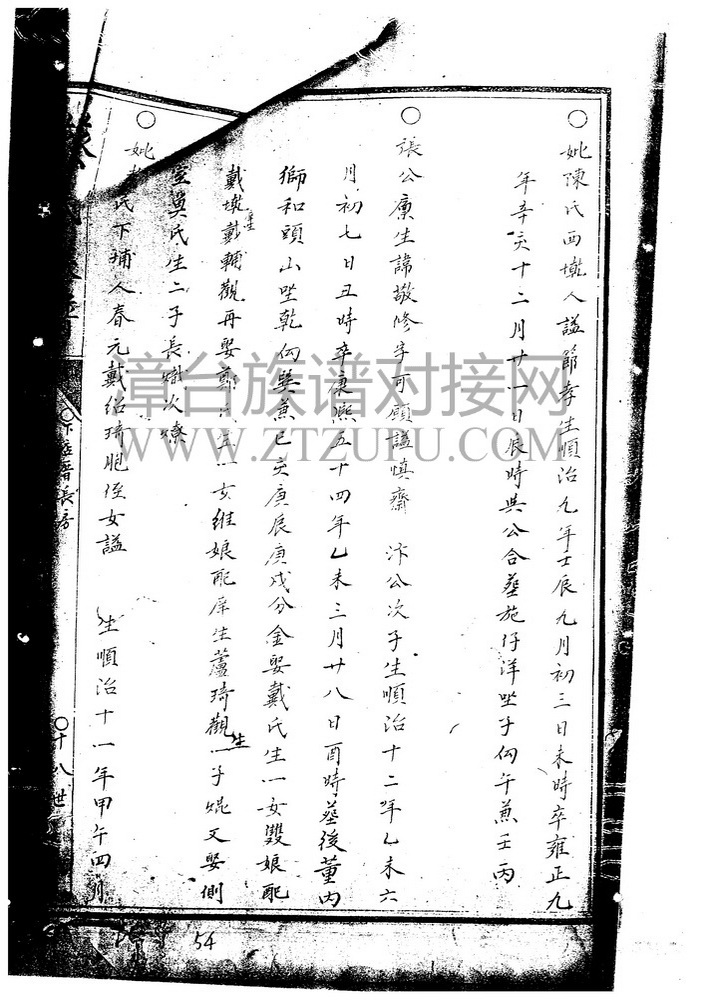 ○妣陳氏西墩人謚節孝生順治九年壬辰九月初三日未時卒雍正九
年辛亥十二月廿一日辰時與公合塟施仔洋坐子向午兼壬丙
○張公廩生諱敬修字可願謚慎齋 汴公次子生順治十二年乙未六
月初七日丑時卒康熙五十四年乙未三月廿八日酉時塟後董內
獅和頭山坐乾向巽兼已亥庚辰庚戌分金娶戴氏生一女雙娘配
戴墘戴輔觀再娶鄭氏生一女維娘配庠生蘆琦觀生一子焜又娶側
室莫氏生二子長 次燎
○妣 氏下埔人春元戴紹琦胞侄女謚 生順治十一年甲午四月
長房
○十八世
54
章台族谱对接网
WWW.ZTZUPU.COM